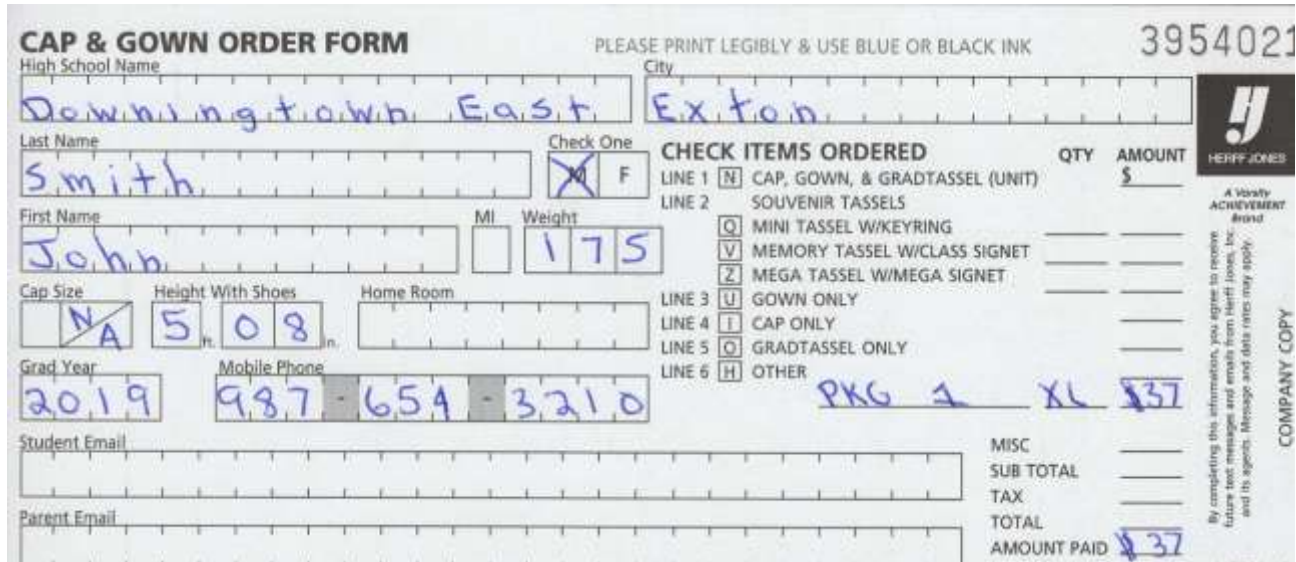 CAP & GOWN ORDER FORM PLEASE PRINT LEGIBLY & USE BLUE OR BLACK INK 3954021
High School Name City
Downingtown East Exton
HERFF JONES
A Varsity
ACHIEVEMENT
Brand
Last Name Check One
Smith M F
First Name MI Weight
John 175
Cap Size Height With Shoes Home Room
NA 5 ft. 08 in.
Grad Year Mobile Phone
2019 987-654-3210
Student Email
Parent Email
CHECK ITEMS ORDERED QTY AMOUNT
LINE 1 N CAP, GOWN, & GRADTASSEL (UNIT) $
LINE 2 SOUVENIR TASSELS
Q MINI TASSEL W/KEYRING
V MEMORY TASSEL W/CLASS SIGNET
Z MEGA TASSEL W/MEGA SIGNET
LINE 3 U GOWN ONLY
LINE 4 I CAP ONLY
LINE 5 O GRADTASSEL ONLY
LINE 6 H OTHER
PKG 1 XL $37
MISC
SUB TOTAL
TAX
TOTAL
AMOUNT PAID $37
By completing this information, you agree to receive
future text messages and emails from Herff Jones, Inc.
and its agents. Message and data rates may apply.
COMPANY COPY